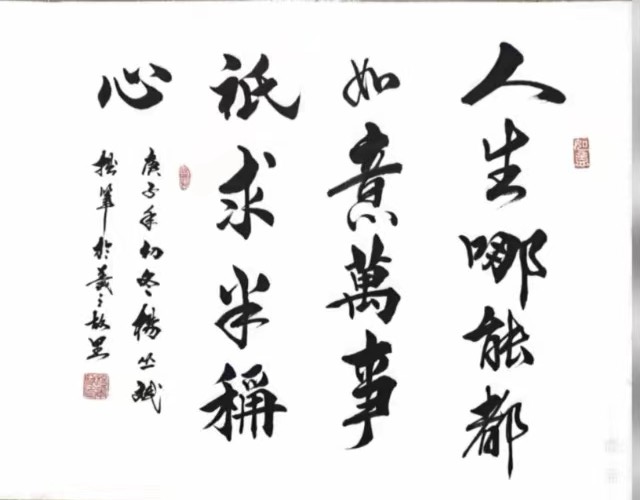 人生哪能都
如意萬事
祇求半稱
心
庚子年初冬楊业斌
拙筆於羲之故里